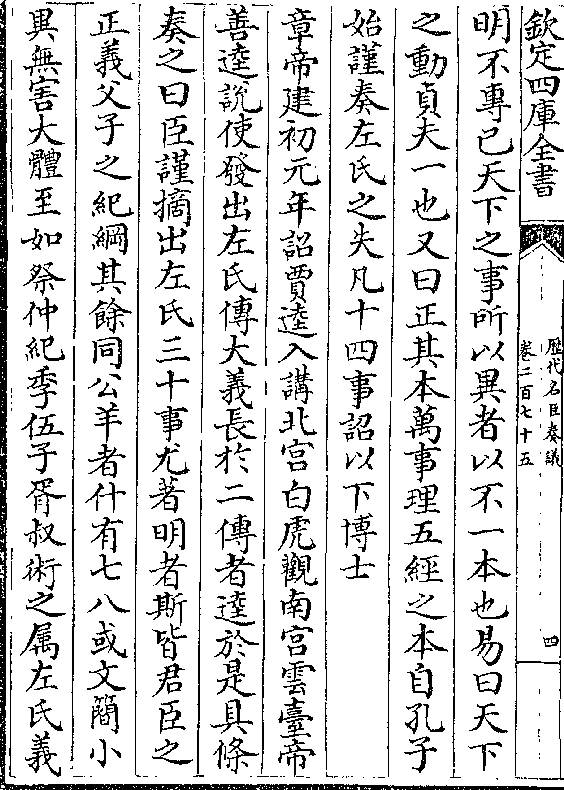 欽定四庫全書
歷代名臣奏議
卷二百七十五
四
明不專己天下之事所以異者以不一本也易曰天下
之動貞夫一也又曰正其本萬事理五經之本自孔子
始謹奏左氏之失凡十四事詔以下博士
章帝建初元年詔賈逵入講北宮白虎觀南宮雲臺帝
善逵說使發出左氏傳大義長於二傳者逵於是具條
奏之曰臣謹摘出左氏三十事尤著明者斯皆君臣之
正義父子之紀綱其餘同公羊者什有七八或文簡小
異無害大體至如祭仲紀季伍子胥叔術之属左氏義